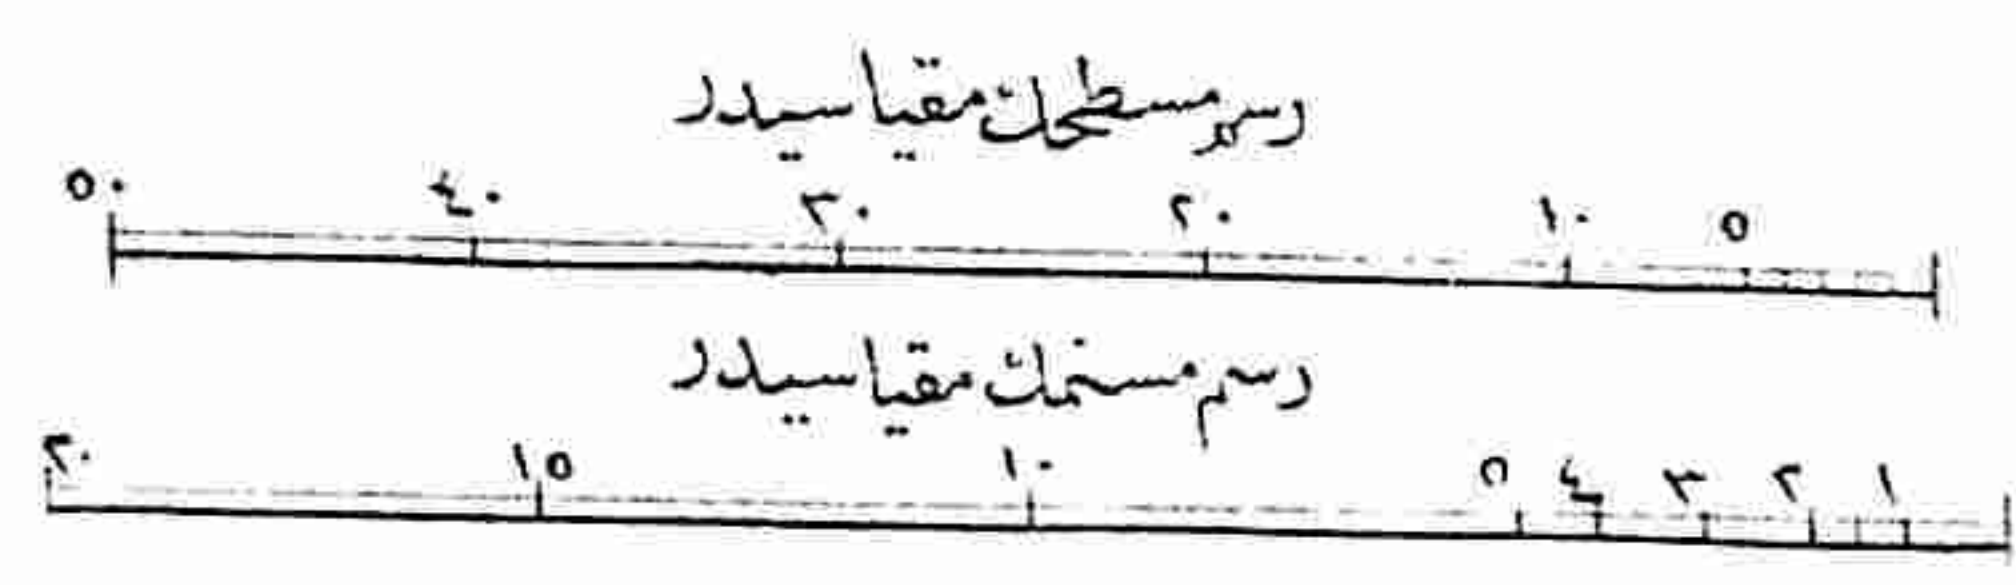 رسم مسطحك مقياسيدر
٥٠ ٤٠ ٣٠ ٢٠ ١٠ ٥
رسم مستمك مقياسيدر
٢٠ ١٥ ١٠ ٥ ٤ ٣ ٢ ١